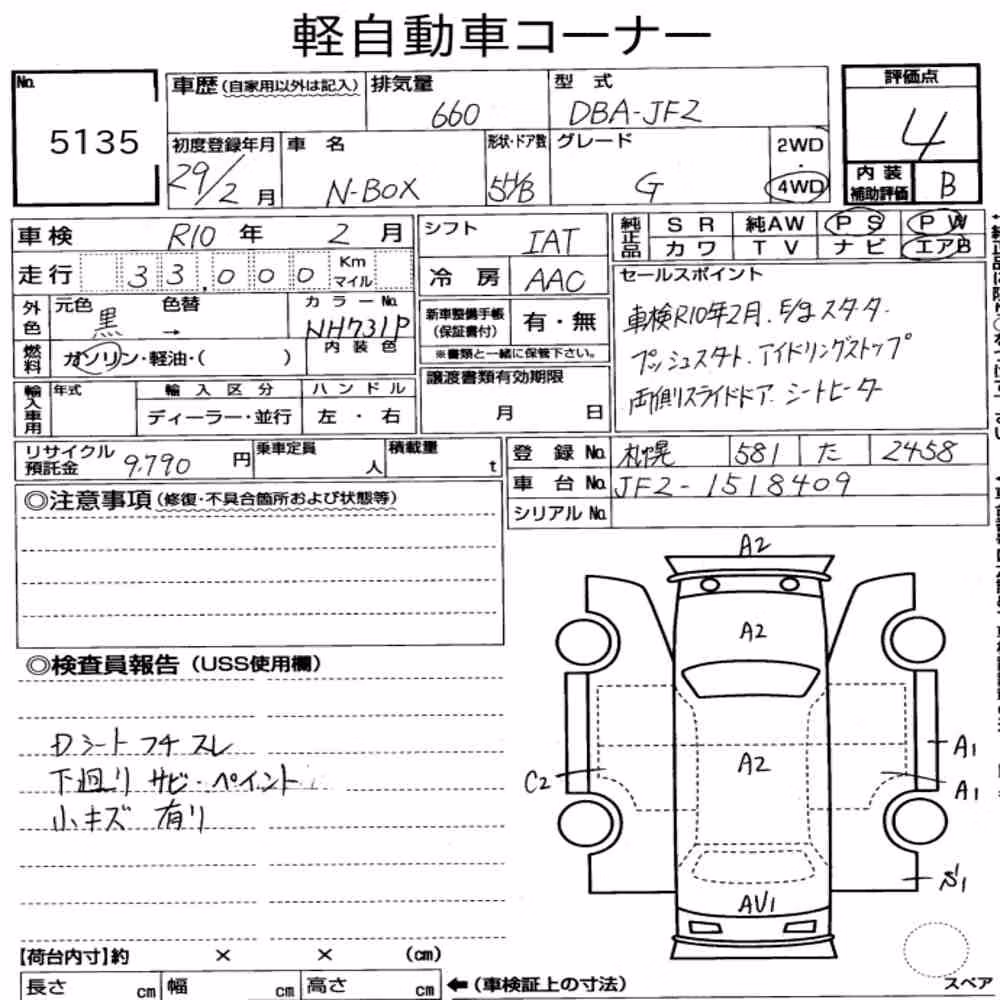 軽自動車コーナー
No. 5135
車歴(自家用以外は記入) 排気量 660 型式 DBA-JF2
評価点 4
初度登録年月 29/2月 車名 N-BOX 形状・ドア数 5H/B グレード G 2WD・4WD
内装補助評価 B
車検 R10年 2月 シフト IAT
純正品 SR 純AW PS PW
カワ TV ナビ エアB
走行 33,000 Km マイル 冷房 AAC
セールスポイント
車検R10年2月.E/gスターター
プッシュスタート.アイドリングストップ
両側スライドドア シートヒーター
外色 元色 黒 色替 → カラーNo. NH731P
新車整備手帳(保証書付) 有・無
※書類と一緒に保管下さい。
燃料 ガソリン・軽油・( ) 内装色
譲渡書類有効期限 月 日
輸入車用 年式 輸入区分 ハンドル
ディーラー・並行 左・右
リサイクル預託金 9,790円 乗車定員 人 積載量 t
登録No. 札幌 581 た 2458
車台No. JF2-1518409
シリアルNo.
◎注意事項(修復・不具合箇所および状態等)
◎検査員報告(USS使用欄)
Dシート フチ スレ
下廻り サビ・ペイント
小キズ 有り
A2
A2
A2
A1
C2
A1
S1
AU1
スペア
【荷台内寸】約 × × (cm)
長さ cm 幅 cm 高さ cm ←(車検証上の寸法)